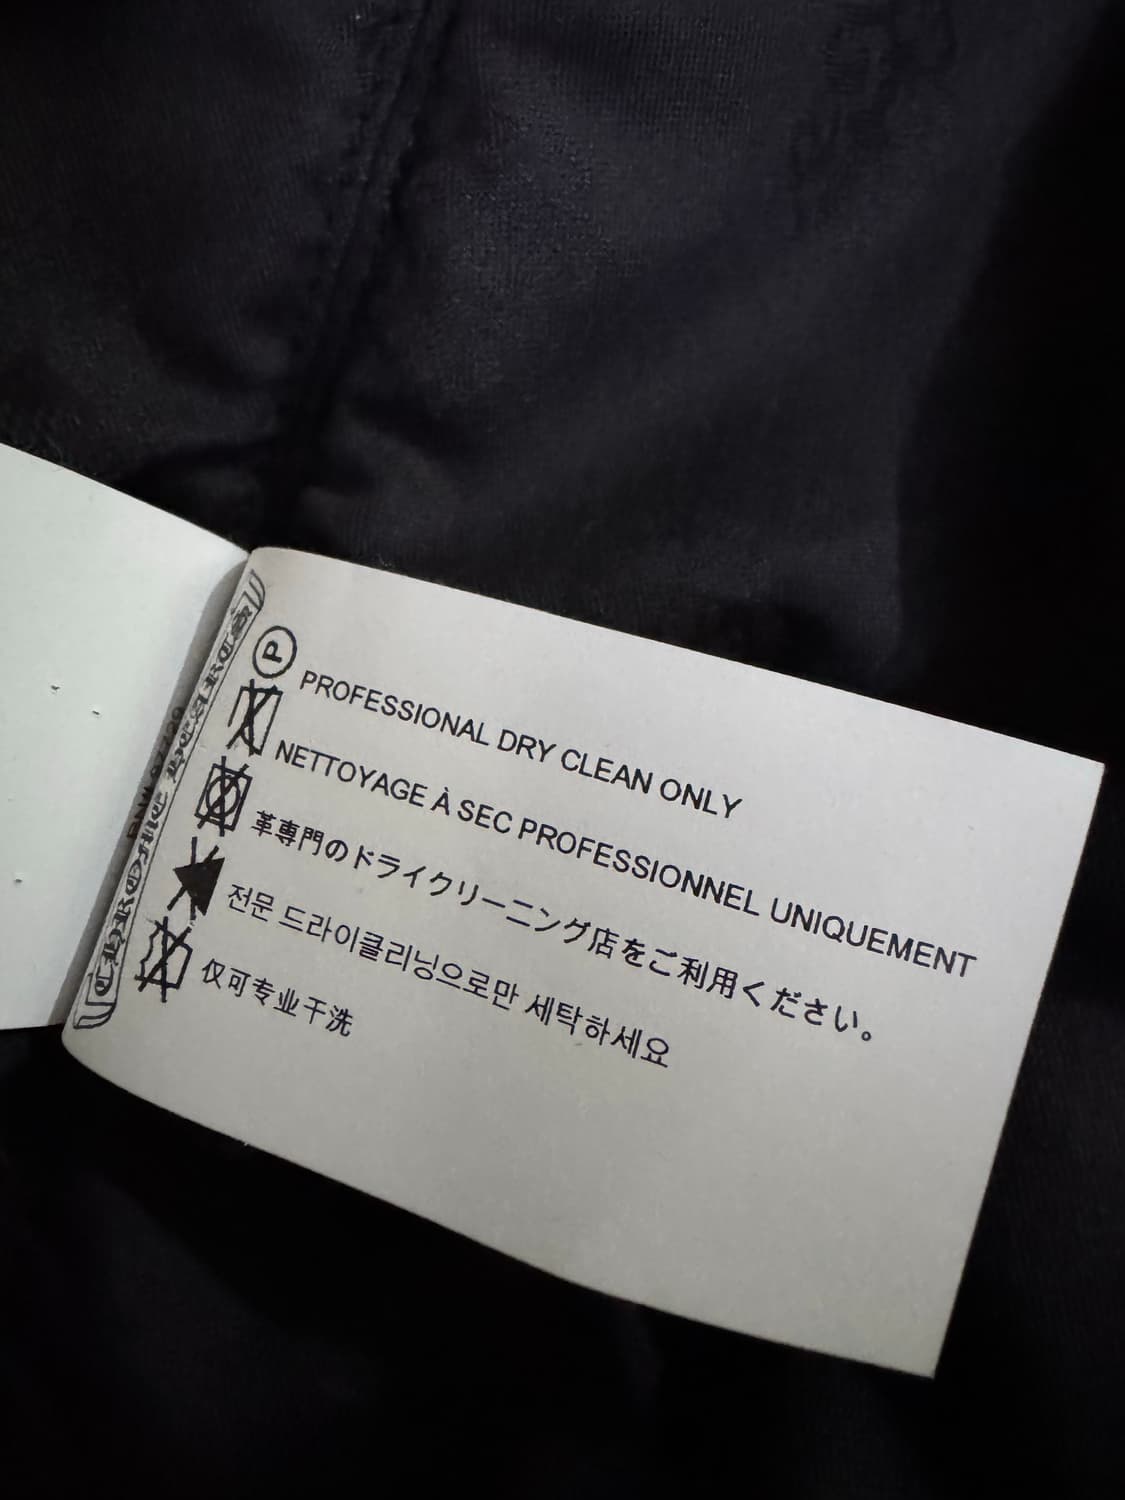 CHROME HEARTS
P
PROFESSIONAL DRY CLEAN ONLY
NETTOYAGE À SEC PROFESSIONNEL UNIQUEMENT
革専門のドライクリーニング店をご利用ください。
전문 드라이클리닝으로만 세탁하세요
仅可专业干洗